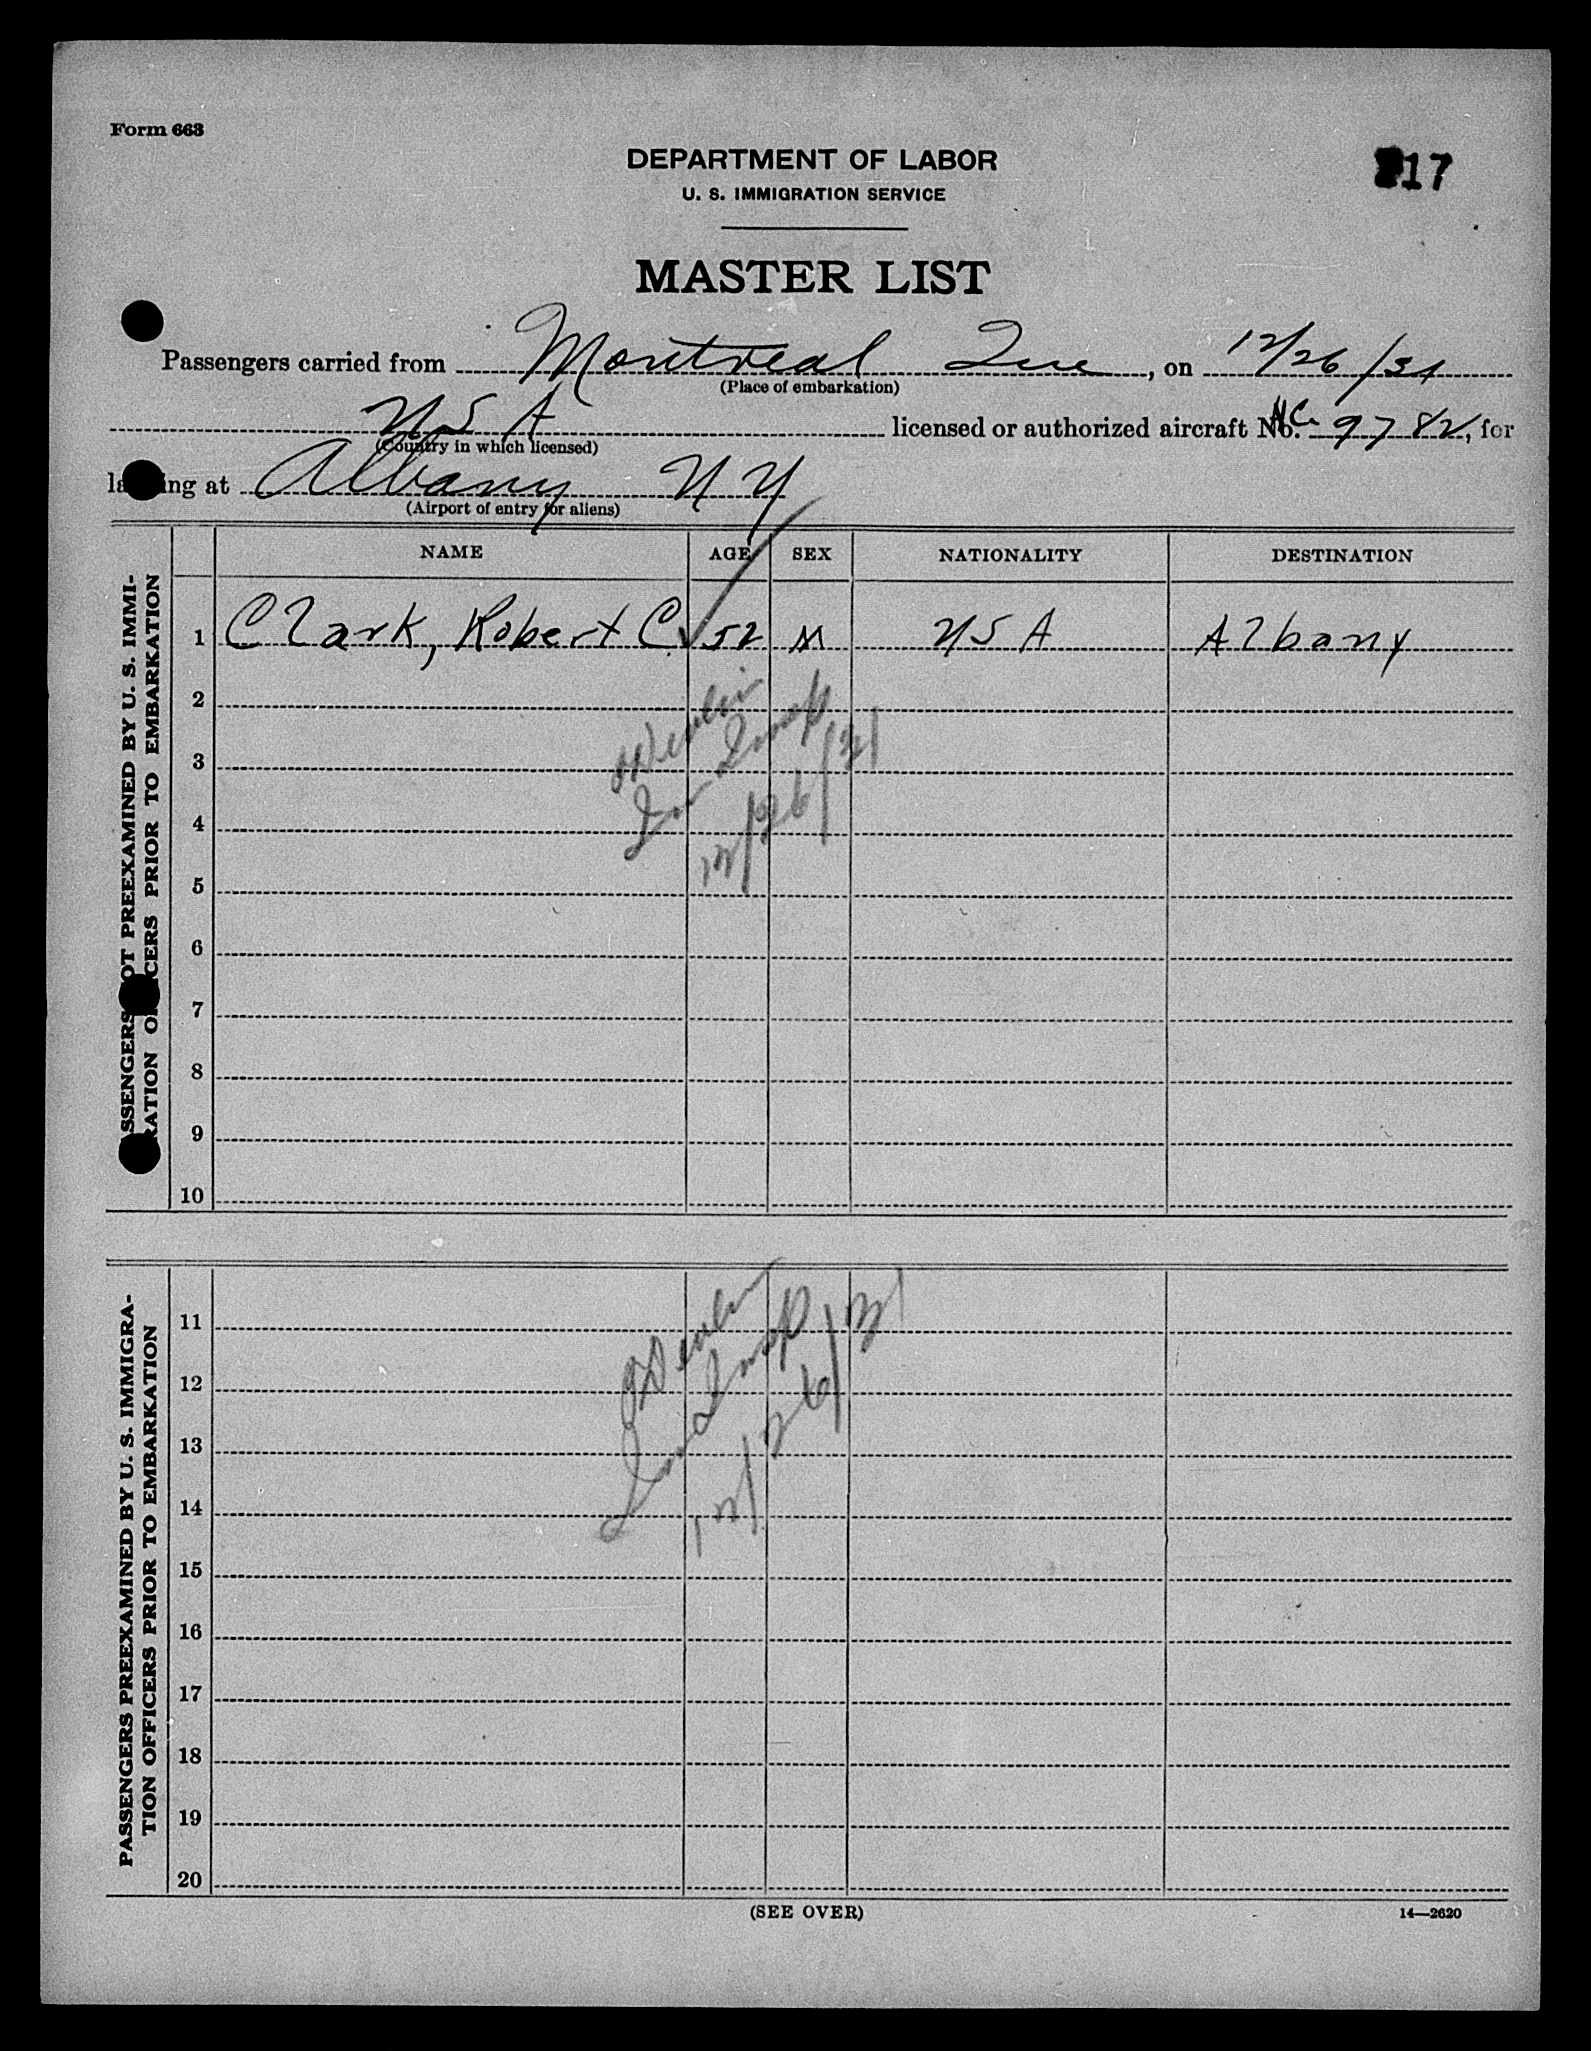 Form 663
DEPARTMENT OF LABOR
U. S. IMMIGRATION SERVICE
17
MASTER LIST
Passengers carried from Montreal Que, on 12/26/31
(Place of embarkation)
USA licensed or authorized aircraft No. NC 9782, for
(Country in which licensed)
la ing at Albany NY
(Airport of entry for aliens)
NAME AGE SEX NATIONALITY DESTINATION
SSENGERS OT PREEXAMINED BY U. S. IMMI-
RATION O CERS PRIOR TO EMBARKATION
1 Clark, Robert C. 52 M USA Albany
2
3
4
5
6
7
8
9
10
Im Insp
12/26/31
PASSENGERS PREEXAMINED BY U. S. IMMIGRA-
TION OFFICERS PRIOR TO EMBARKATION
11
12
13
14
15
16
17
18
19
20
Im Insp
12/26/31
(SEE OVER)
14—2620